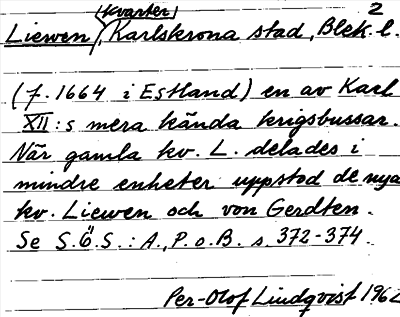 kvarter 2
Liewen, Karlskrona stad, Blek. l.
(f. 1664 i Estland) en av Karl
XII:s mera kända krigsbussar.
När gamla kv. L. delades i
mindre enheter uppstod de nya
kv. Liewen och von Gerdten.
Se S.Ö.S.: A., P. o. B. s. 372-374.
Per-Olof Lindqvist 1962